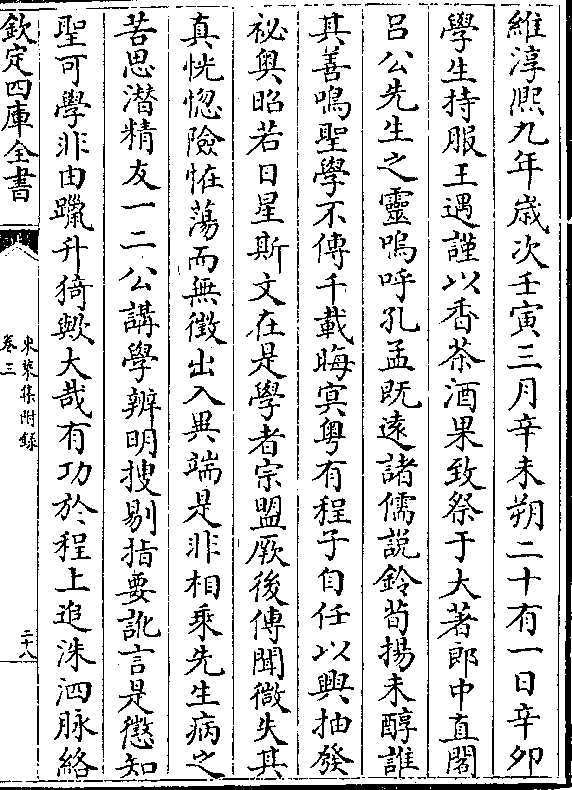 維淳熈九年歳次壬寅三月辛未朔二十有一日辛夘
學生持服王遇謹以香茶酒果致祭于大著郎中直閣
吕公先生之靈嗚呼孔孟既逺諸儒説鈴荀揚未醇誰
其善鳴聖學不傳千載晦㝠粤有程子自任以興抽發
祕奥昭若日星斯文在是學者宗盟厥後傳聞微失其
真恍惚險怪蕩而無徵出入異端是非相乘先生病之
苦思潛精友一二公講學辨明搜剔指要訛言是懲知
聖可學非由躐升猗歟大哉有功於程上追洙泗脉絡
欽定四庫全書
東萊集附録
卷三
二十八